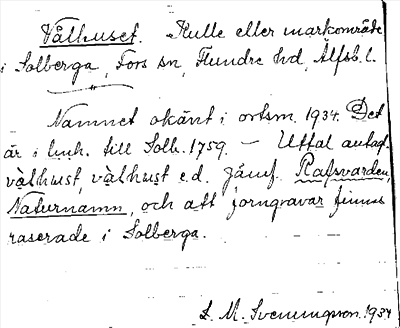 Vålhuset. Kulle eller markområde
i Solberga, Fors sn, Flundre hd, Älfsb. l.
Namnet okänt i ortsm. 1934. Det
är i lmh. till Solb. 1759. – Uttal antagl.
vålhust, vålhust e.d. Jämf. Rafsvarden,
Naturnamn, och att forngravar finns
raserade i Solberga.
L. M. Svenungsson. 1934